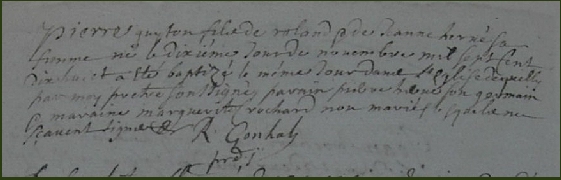 Pierre guyton fils de roland & de Janne hervé sa
femme né le dixiéme Jour de novembre mil sept cent
dix huict a ete baptizé le même Jour dans l'Eglise de
par moy pretre soussigné parain pierre son germain
& maraine marguerite Crochard non mariés lesquels ne
scavent signer
R Gonhal